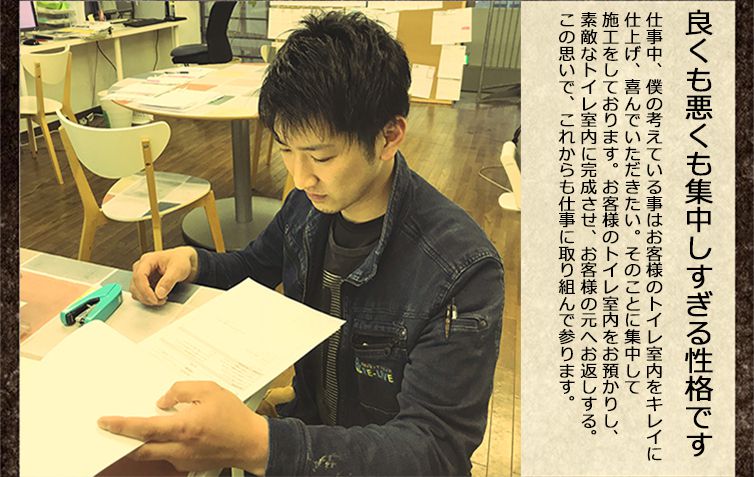 良くも悪くも集中しすぎる性格です
仕事中、僕の考えている事はお客様のトイレ室内をキレイに
仕上げ、喜んでいただきたい。そのことに集中して
施工をしております。お客様のトイレ室内をお預かりし、
素敵なトイレ室内に完成させ、お客様の元へお返しする。
この思いで、これからも仕事に取り組んで参ります。